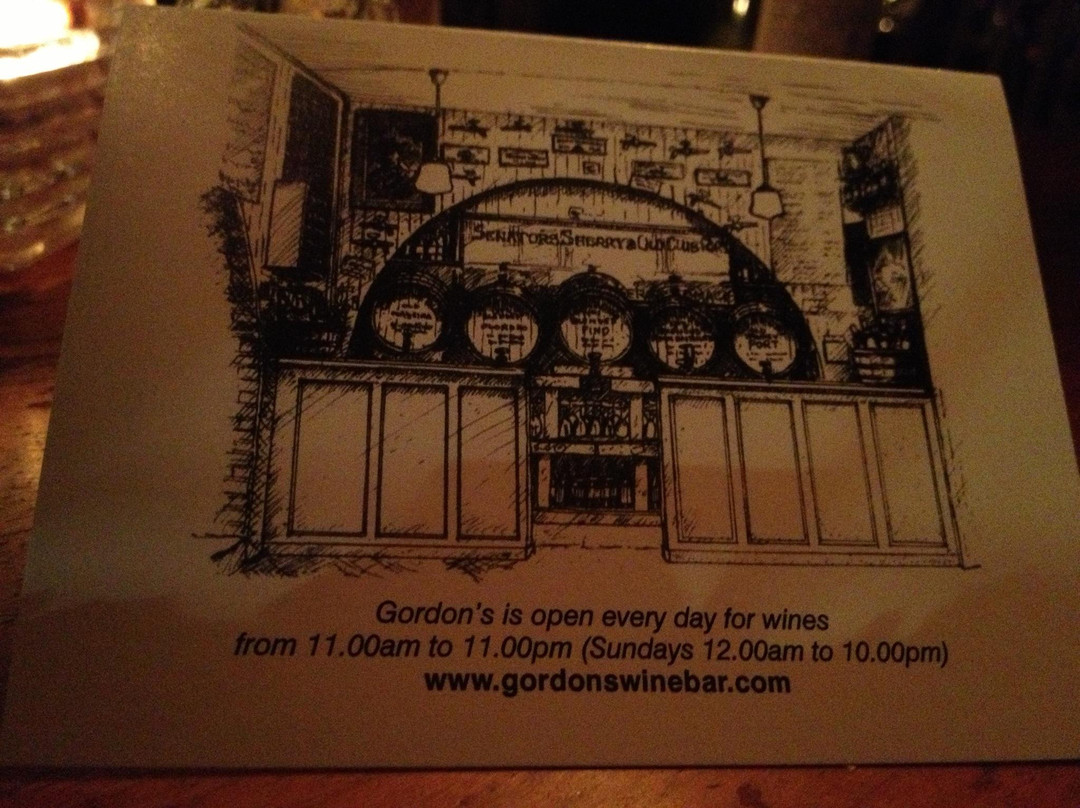 SENATORS SHERRY & OLD CLUB
FINO
PORT
Gordon's is open every day for wines
from 11.00am to 11.00pm (Sundays 12.00am to 10.00pm)
www.gordonswinebar.com